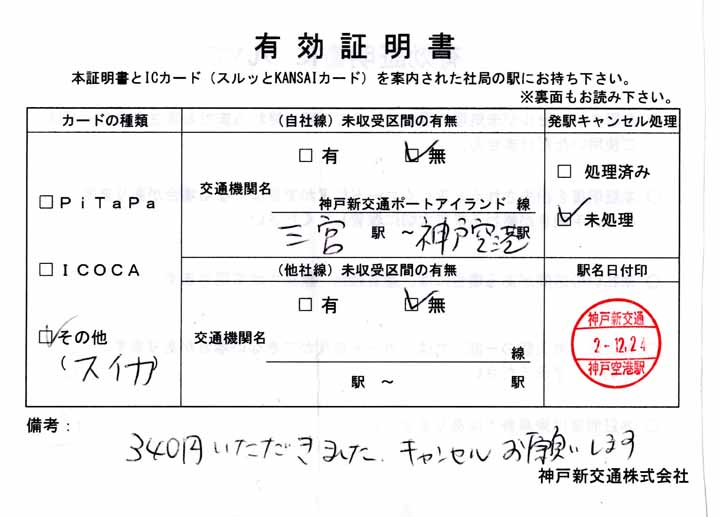 有効証明書
本証明書とICカード（スルッとKANSAIカード）を案内された社局の駅にお持ち下さい。
※裏面もお読み下さい。
カードの種類
□ＰｉＴａＰａ
□ＩＣＯＣＡ
☑その他
(スイカ)
（自社線）未収受区間の有無
□ 有 ☑ 無
交通機関名
神戸新交通ポートアイランド 線
三宮 駅 ～ 神戸空港 駅
（他社線）未収受区間の有無
□ 有 ☑ 無
交通機関名
線
駅 ～ 駅
発駅キャンセル処理
□ 処理済み
☑ 未処理
駅名日付印
神戸新交通
2-12.24
神戸空港駅
備考：
340円いただきました. キャンセルお願いします
神戸新交通株式会社